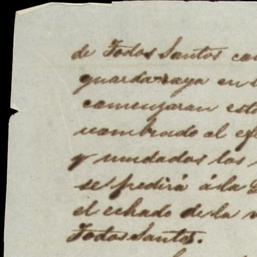 de Todos Santos con
guarda-raya en l
comenzaran esto
nombrado al efe
y mudados los
se pedirá á la
el echado de la
Todos Santos.